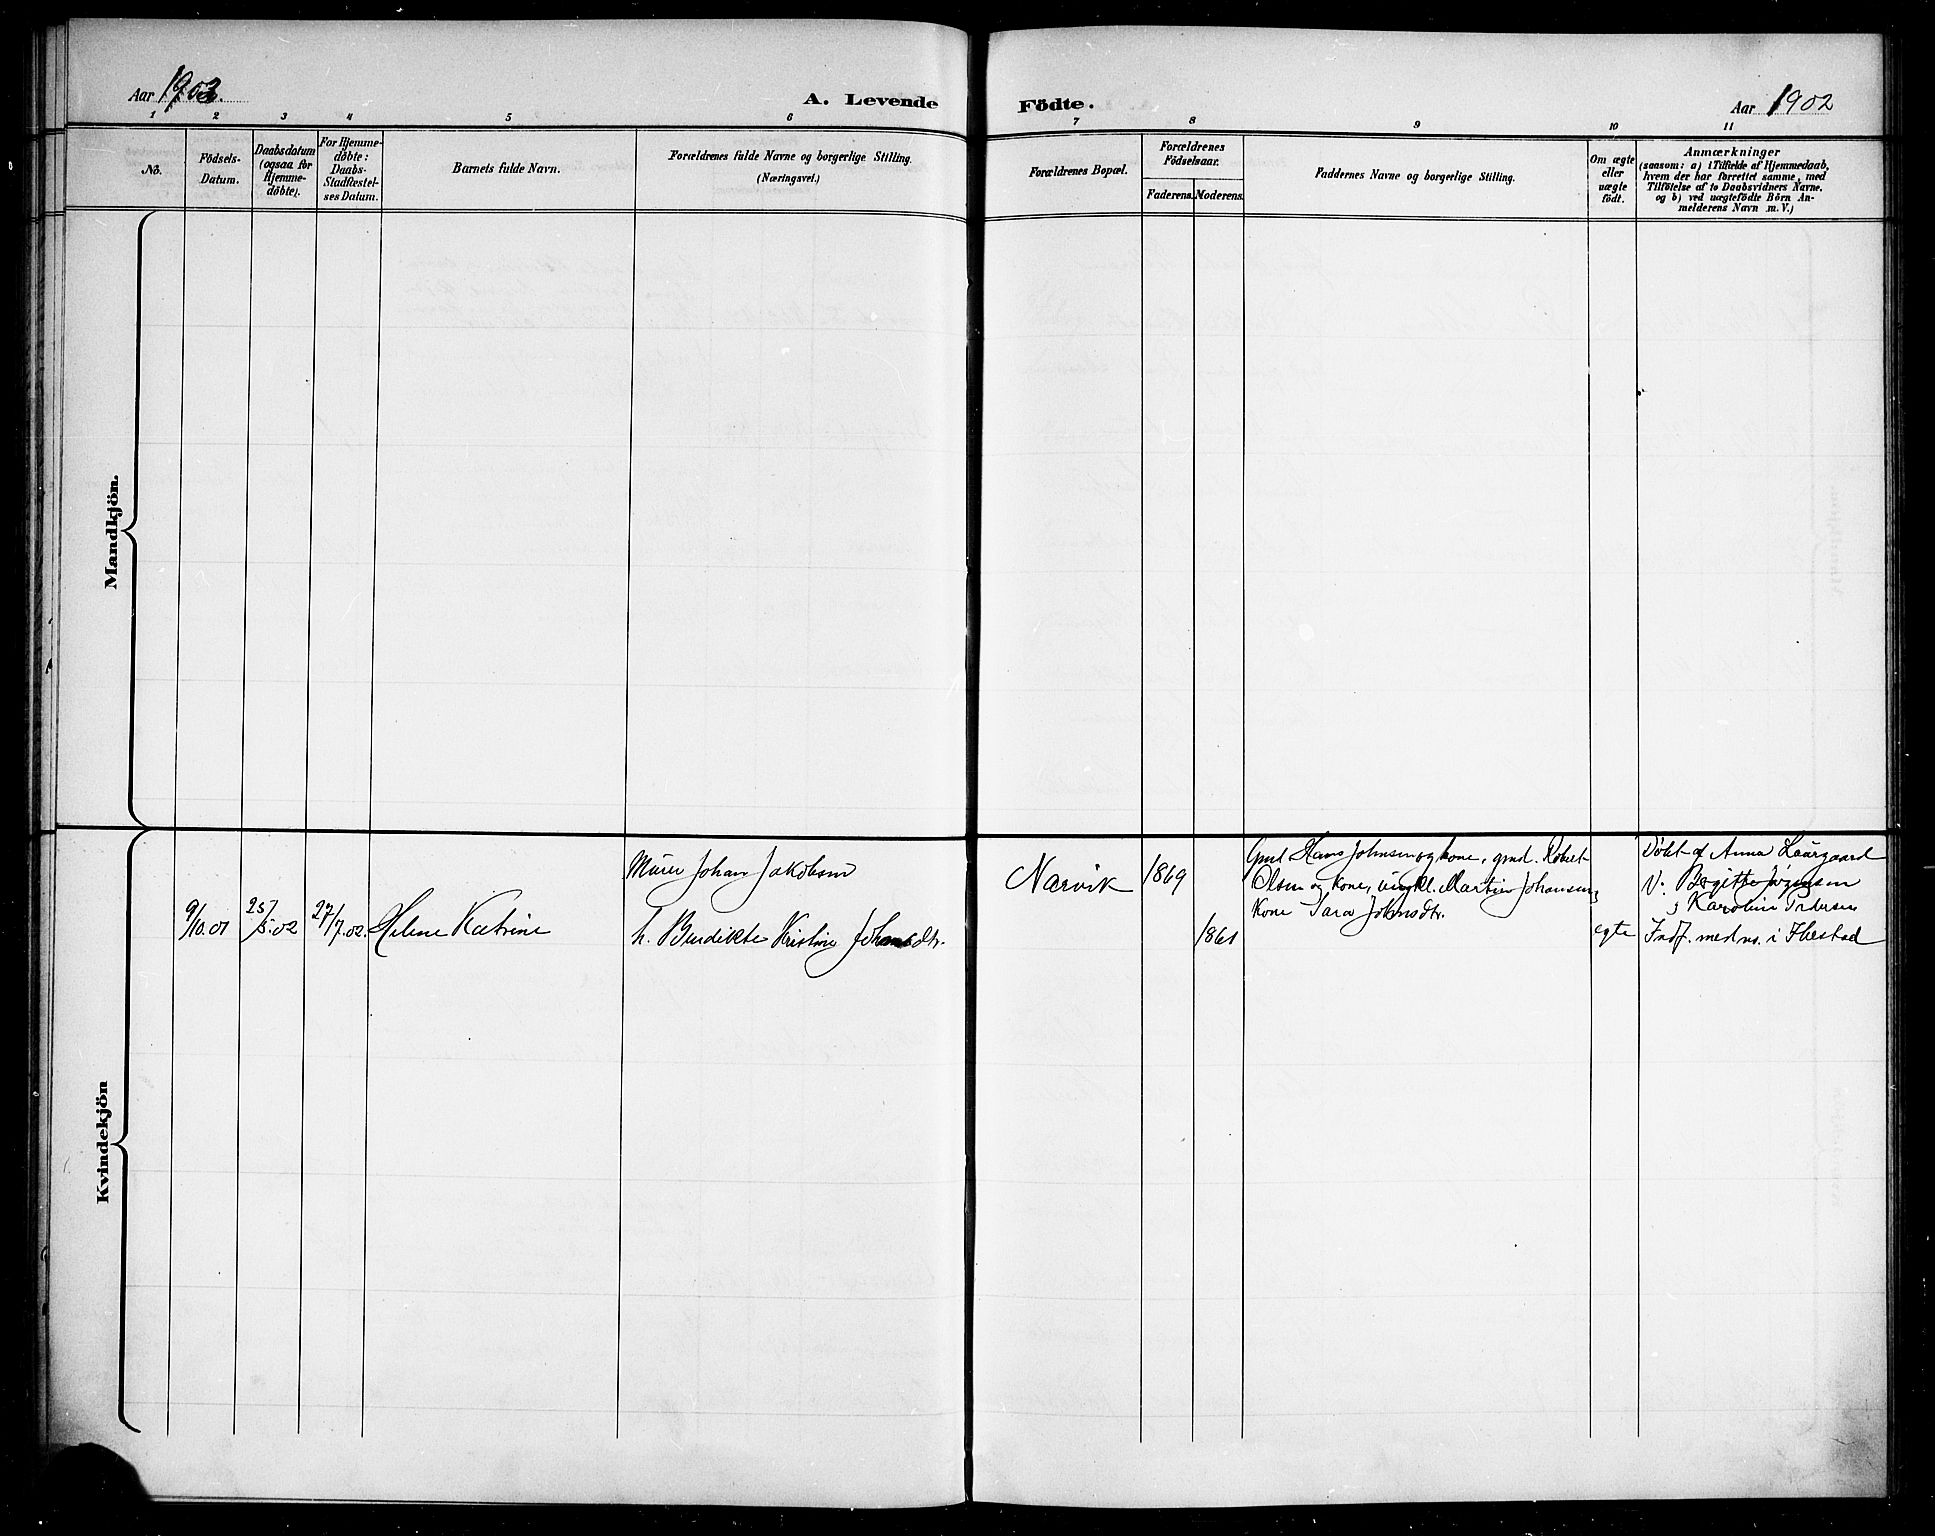 Aar 1902.
A. Levende Födte.
Aar 1902
1 2 3 4 5 6 7 8 9 10 11
No.
Födsels-
Datum.
Daabsdatum
(ogsaa for
Hjemme-
döbte).
For Hjemme-
döbte:
Daabs-
Stadfæstel-
ses Datum.
Barnets fulde Navn.
Forældrenes fulde Navne og borgerlige Stilling.
(Næringsvei.)
Forældrenes Bopæl.
Forældrenes
Födselsaar.
Faderens. Moderens.
Faddernes Navne og borgerlige Stilling.
Om ægte
eller
uægte
födt.
Anmærkninger
(saasom: a) i Tilfælde af Hjemmedaab,
hvem der har forrettet samme, med
Tilföielse af to Daabsvidners Navne.
og b) ved uægtefödte Börn An-
melderens Navn m.V.)
Mandkjön.
Kvindekjön
9/10.01
25/5.02
27/7.02.
Helene Katrine
Murer Johan Jakobsen
h. Bendikte Kristine Johansdtr.
Narvik
1869
1861
Gmd Hans Johnsen og kone, gmd. Robert
Olsen og kone, ungkl. Martin Johansen,
kone Sara Johnsdtr.
egte
Döbt af Anna Laurgaard
V: Birgitte Jörgensen
Karoline Pedersen
Indf. med no. i Ibestad